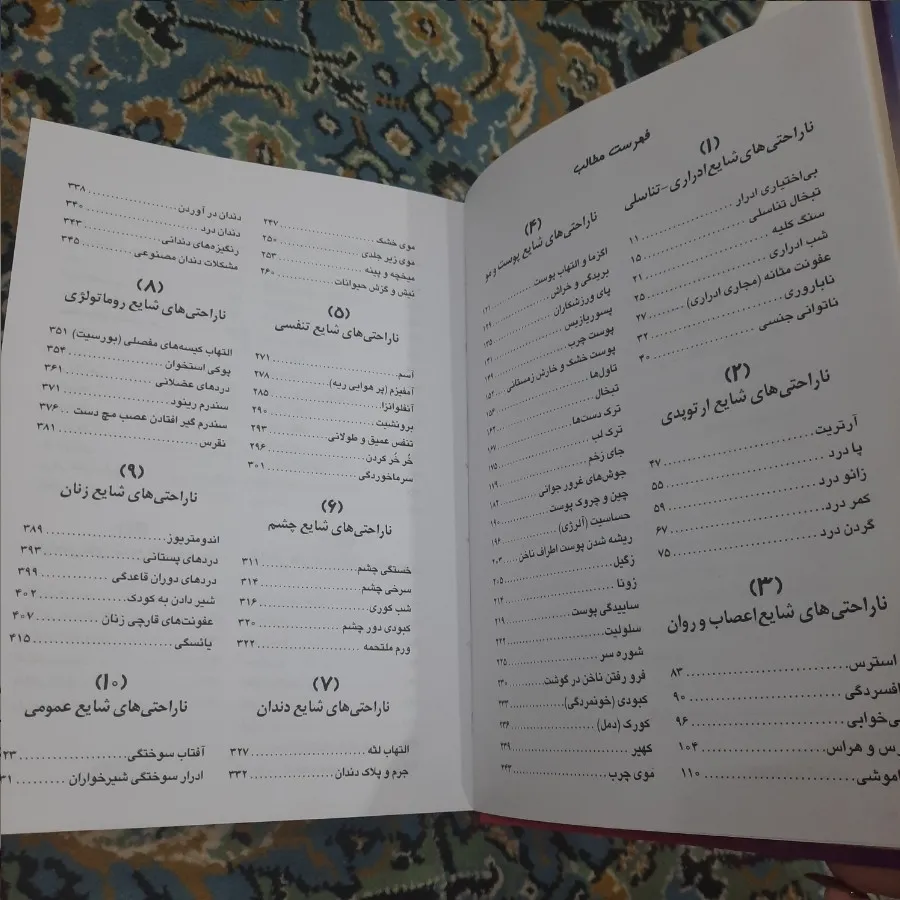 فهرست مطالب
(۱)
ناراحتی‌های شایع ادراری-تناسلی
بی‌اختیاری ادرار ۱۱
تبخال تناسلی ۱۵
سنگ کلیه ۲۱
شب ادراری ۲۵
عفونت مثانه (مجاری ادراری) ۲۷
ناباروری ۳۲
ناتوانی جنسی ۴۰
(۲)
ناراحتی‌های شایع ارتوپدی
آرتریت ۴۷
پا درد ۵۵
زانو درد ۵۹
کمر درد ۶۷
گردن درد ۷۵
(۳)
ناراحتی‌های شایع اعصاب و روان
استرس ۸۳
افسردگی ۹۰
بی‌خوابی ۹۶
رس و هراس ۱۰۴
اموشی ۱۱۰
(۴)
ناراحتی‌های شایع پوست و مو
اگزما و التهاب پوست
بریدگی و خراش
پای ورزشکاران
پسوریازیس
پوست چرب
پوست خشک و خارش زمستانی
تاول‌ها
تبخال
ترک دست‌ها
ترک لب
جای زخم
جوش‌های غرور جوانی
چین و چروک پوست
حساسیت (آلرژی)
ریشه شدن پوست اطراف ناخن ۲۰۳
زگیل ۲۰۵
زونا ۲۱۴
ساییدگی پوست ۲۱۹
سلولیت ۲۲۲
شوره سر ۲۲۵
فرو رفتن ناخن در گوشت ۲۳۰
کبودی (خونمردگی) ۲۳۳
کورک (دمل) ۲۳۶
کهیر ۲۳۹
موی چرب ۲۴۳
موی خشک ۲۴۷
موی زیر جلدی ۲۵۰
میخچه و پینه ۲۵۳
نیش و گزش حیوانات ۲۶۰
(۵)
ناراحتی‌های شایع تنفسی
آسم ۲۷۱
آمفیزم (پر هوایی ریه) ۲۷۸
آنفلوانزا ۲۸۵
برونشیت ۲۹۰
تنفس عمیق و طولانی ۲۹۳
خُر خُر کردن ۲۹۶
سرماخوردگی ۳۰۱
(۶)
ناراحتی‌های شایع چشم
خستگی چشم ۳۱۱
سرخی چشم ۳۱۴
شب کوری ۳۱۶
کبودی دور چشم ۳۲۰
ورم ملتحمه ۳۲۲
(۷)
ناراحتی‌های شایع دندان
التهاب لثه ۳۲۷
جرم و پلاک دندان ۳۳۲
دندان در آوردن ۳۳۸
دندان درد ۳۴۰
رنگیزه‌های دندانی ۳۴۳
مشکلات دندان مصنوعی ۳۴۵
(۸)
ناراحتی‌های شایع روماتولژی
التهاب کیسه‌های مفصلی (بورسیت) ۳۵۱
پوکی استخوان ۳۵۴
دردهای عضلانی ۳۶۱
سندرم رینود ۳۷۱
سندرم گیر افتادن عصب مچ دست ۳۷۶
نقرس ۳۸۱
(۹)
ناراحتی‌های شایع زنان
اندومتریوز ۳۸۹
دردهای پستانی ۳۹۳
دردهای دوران قاعدگی ۳۹۹
شیر دادن به کودک ۴۰۲
عفونت‌های قارچی زنان ۴۰۷
یائسگی ۴۱۵
(۱۰)
ناراحتی‌های شایع عمومی
آفتاب سوختگی ۲۳
ادرار سوختگی شیرخواران ۳۱